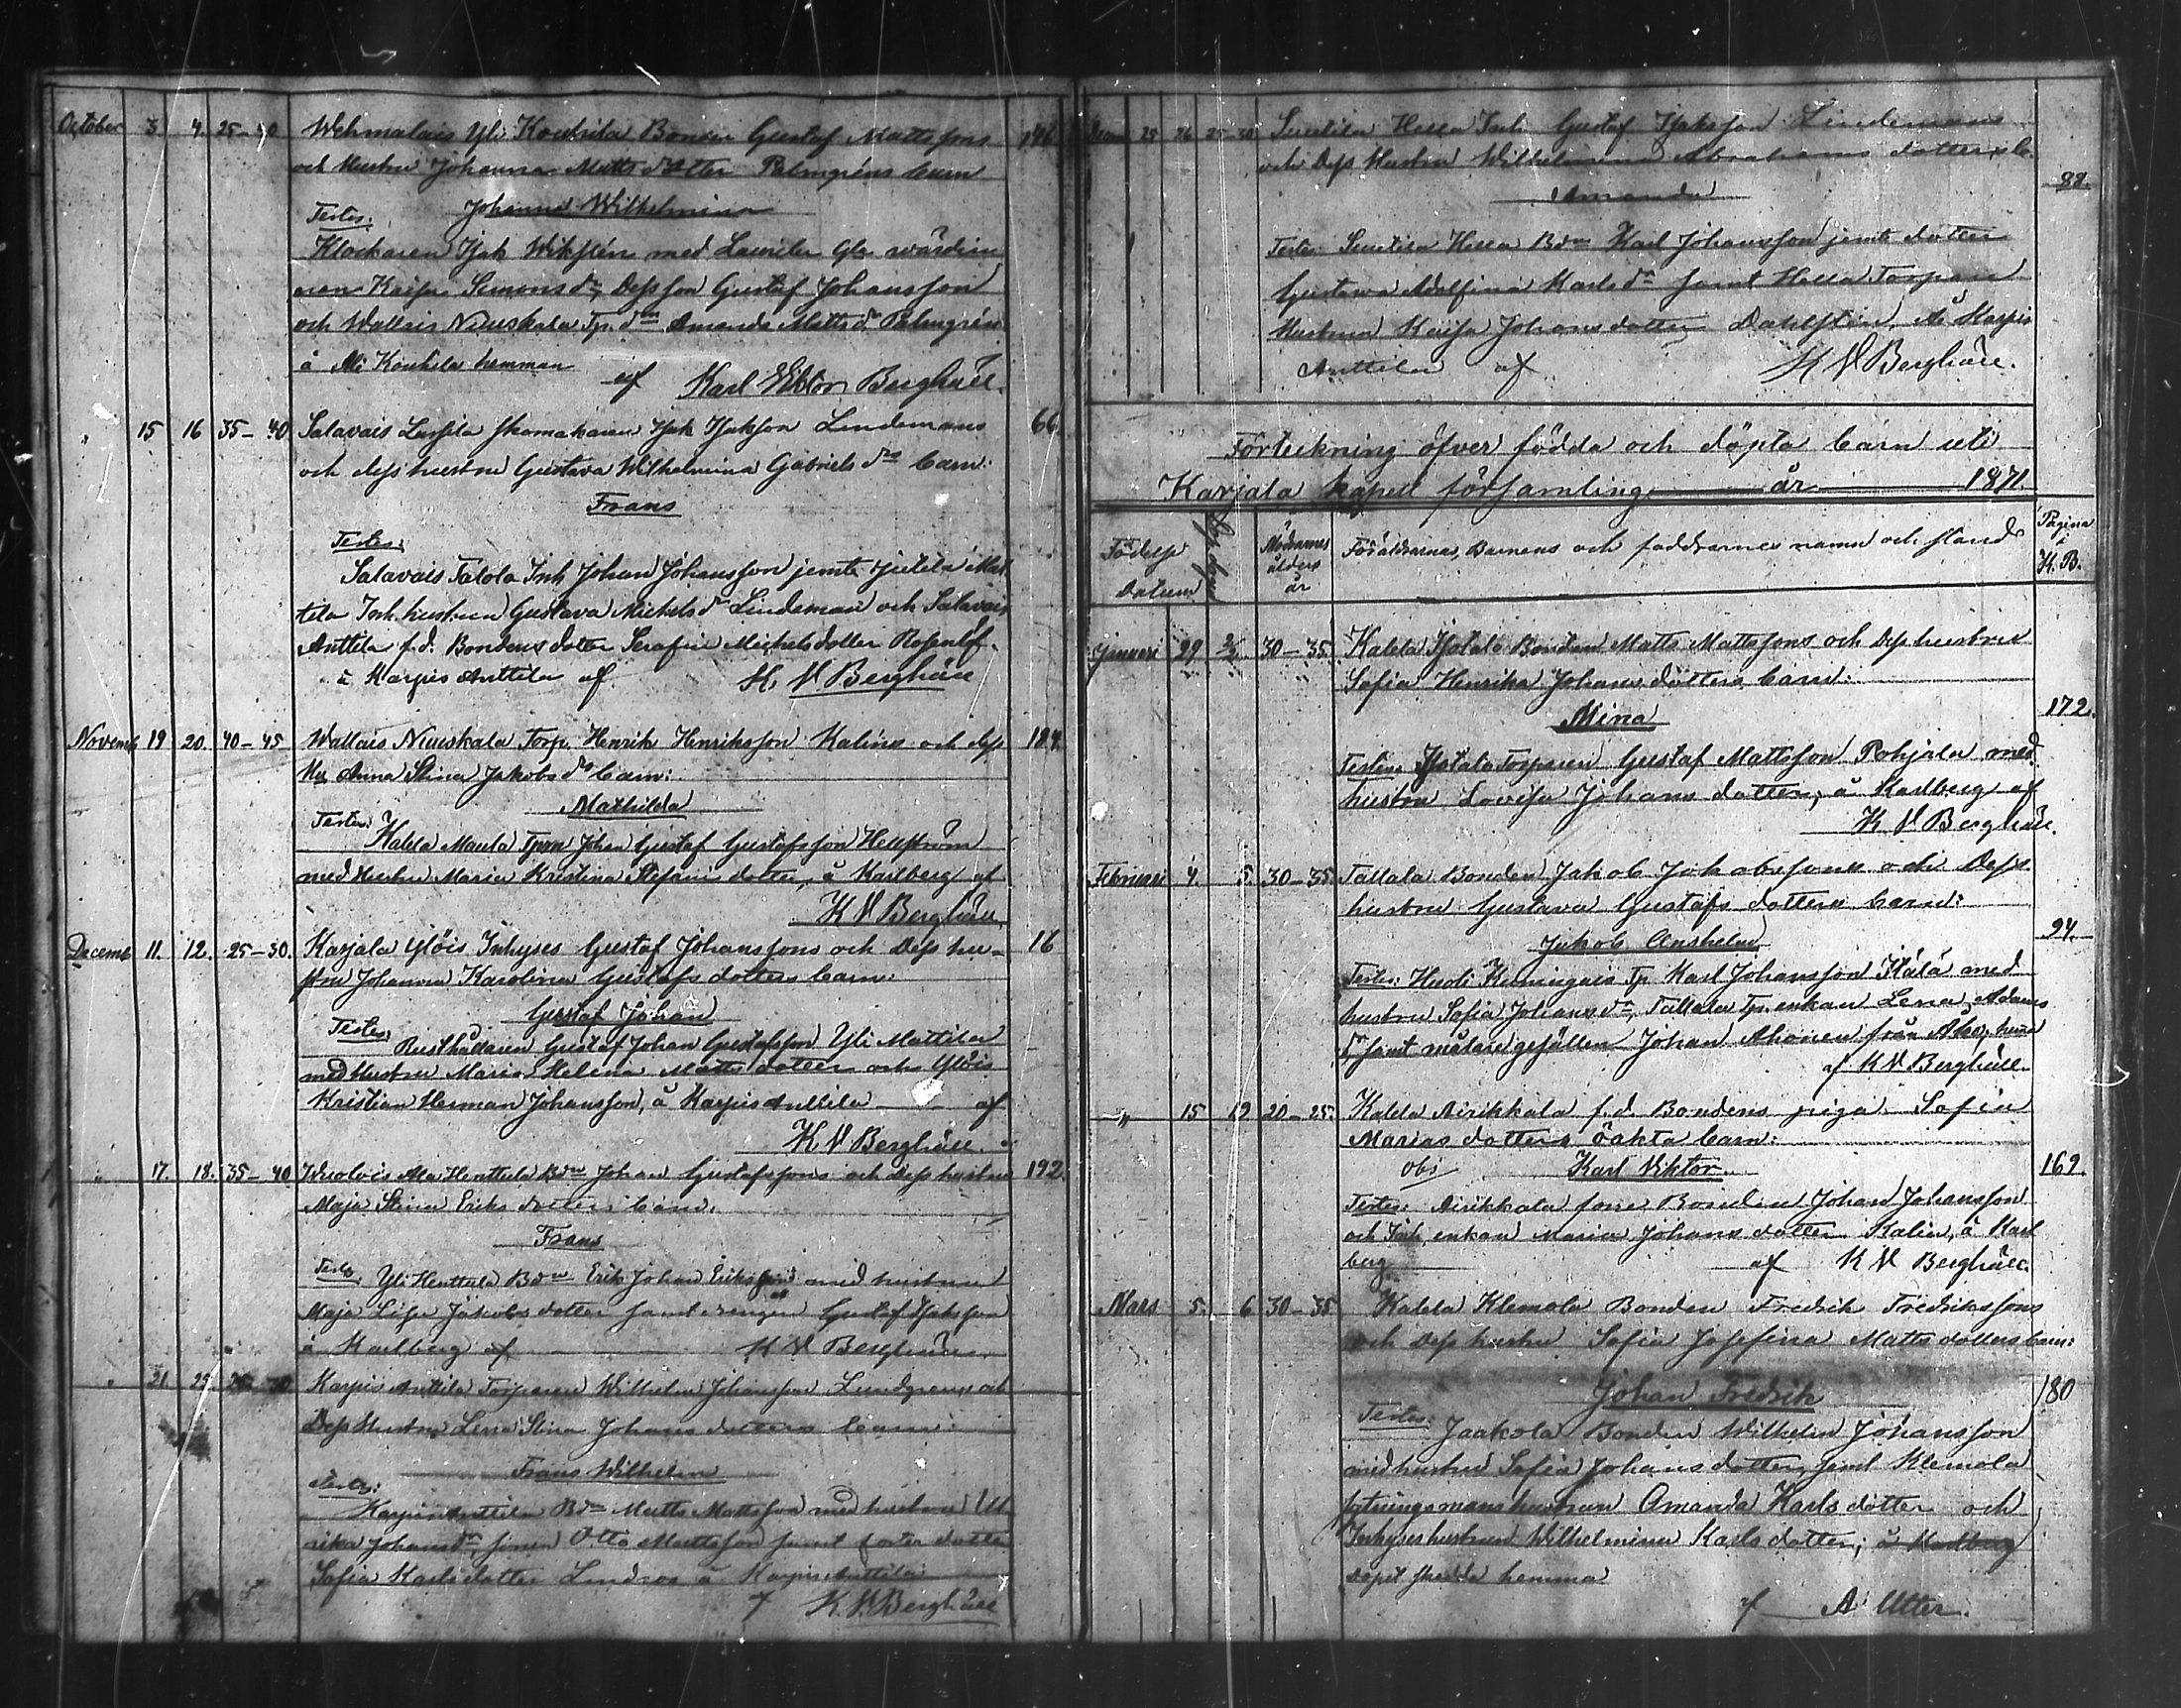 October 3. 4. 25-30 Wehmalais Yli Koukila Bonden Gustaf Mattssons 146
och Hustru Johanna Matts dotter Palmgréns barn
Johanna Wilhelmina
Testes:
Klockaren Isak Wiksten med Laurila Gla wärdin
nan Kaisa Simons dr, Dess son Gustaf Johansson
och Wallais Niuskala Tp. dr Amanda Matts dr Palmgrén
å Ali Koukila hemman af Karl Viktor Berghäll.
" 15 16 35-40 Salavais Lassila skomakaren Isak Isaksson Lindemans 66.
och dess hustru Gustava Wilhelmina Gabriels drs barn:
Frans
Testes:
Salavais Talola Inh Johan Johansson jemte
tila Inh. hustrun Gustava Michels dr Lindeman och Salavais
Anttila f.d. Bondens dotter Serafia Michelsdotter Rosenlöf.
å Karjis Anttila af K. V Berghäll
Novemb 19 20. 40-45 Wallais Niuskala Torp. Henrik Henriksson Kalins och dess 184.
Hu Anna Stina Jakobs drs barn:
Mathilda
Testes:
Kalela Maula Tprn Johan Gustaf Gustafsson Hellström
med Hustru Maria Kristina Stefans dotter, å Karlberg af
K V Berghäll
Decemb 11. 12. 25-30. Karjala Ylöis Inhyses Gustaf Johanssons och Dess hu- 16
stru Johanna Karolina Gustafs dotters barn:
Gustaf Johan
Testes:
Rusthållaren Gustaf Johan Gustafsson Yli Mattila
med Hustru Maria Helena Matts dotter och Ylöis
Kristian Herman Johansson, å Karjis Anttila af
K V Berghäll.
" 17. 18. 35-40 Ala Henttula Bdn Johan Gustafssons och Dess hustru 192.
Maja Stina Eriks dotters barn.
Frans
Testes, Yli Henttula Bdn Erik Johan Eriksson med hustru
Maja Lisa Jakobs dotter samt drengen Gustaf Isaksson
å Karlberg af K V Berghäll
" 21. 25. 25-30 Karjis Anttila Torparen Wilhelm Johansson Lundgrens och
Dess Hustru Lena Stina Johans dotters barn:
Frans Wilhelm
Testes:
Karjis Anttila Bdn Matts Mattsson med hustru Ul
rika Johans dr, sonen Otto Mattsson samt foster dotter
Sofia Karlsdotter Lindros å Karjis Anttila
af K. V. Berghäll
25 26 25-30 Suutila Hella Inh. Gustaf Isaksson Lindemans
och Dess Hustru Wilhelmina Abrahams dotters b.
Amanda 88.
Testes Suutila Hella Bdn Karl Johansson jemte dotter
Gustava Adolfina Karls dr samt Hella Torpare
Hustrun Kaisa Johans dotter Dahlsten, å Karjis
Anttila af K V Berghäll.
Förteckning öfver födda och döpta barn uti
Karjala kapell församling år 1871.
Födelse datum Mödrarnes ålders år Föräldrarnas, Barnens och faddrarnes namn och stånd Pagina i K. B.
Januari 29 2/2 30-35 Kalela Isotalo Bonden Matts Mattssons och Dess hustrus
Sofia Henrika Johans dotters barn:
Mina 172.
Testes: Isotalo Torparen Gustaf Mattsson Pohjala med
hustru Lovisa Johans dotter, å Karlberg af
K V Berghäll.
Februari 4. 5. 30-35. Tallala Bonden Jakob Jakobssons och Dess
hustru Gustava Gustafs dotters barn:
Jakob Anshelm 94.
Testes: Huoli Tp Karl Johansson Kälä med
hustru Sofia Johans dr, Tallala Tp. enkan Lena Adams
dr samt målare gesällen Johan Ahonen från Åbo, hema
af K V Berghäll.
" 15 19 20-25. Kalela Airikkala f.d. Bondens piga Sofia
Marias dotters oäkta barn:
Obs Karl Viktor 169.
Testes: Airikkala förre Bonden Johan Johansson
och Inh. enkan Maria Johans dotter Kalin, å Karl
berg af K V Berghäll.
Mars 5. 6 30-35 Kalela Klemola Bonden Fredrik Fredrikssons
och Dess hustru Sofia Josefina Matts dotters barn:
Johan Fredrik 180
Testes: Jaakola Bonden Wilhelm Johansson
med hustru Sofia Johans dotter, samt Klemola
sytningsmans hustrun Amanda Karls dotter och
Inhyseshustrun Wilhelmina Karls dotter; å Karlberg
döpit skedde hemma
af A Utter.